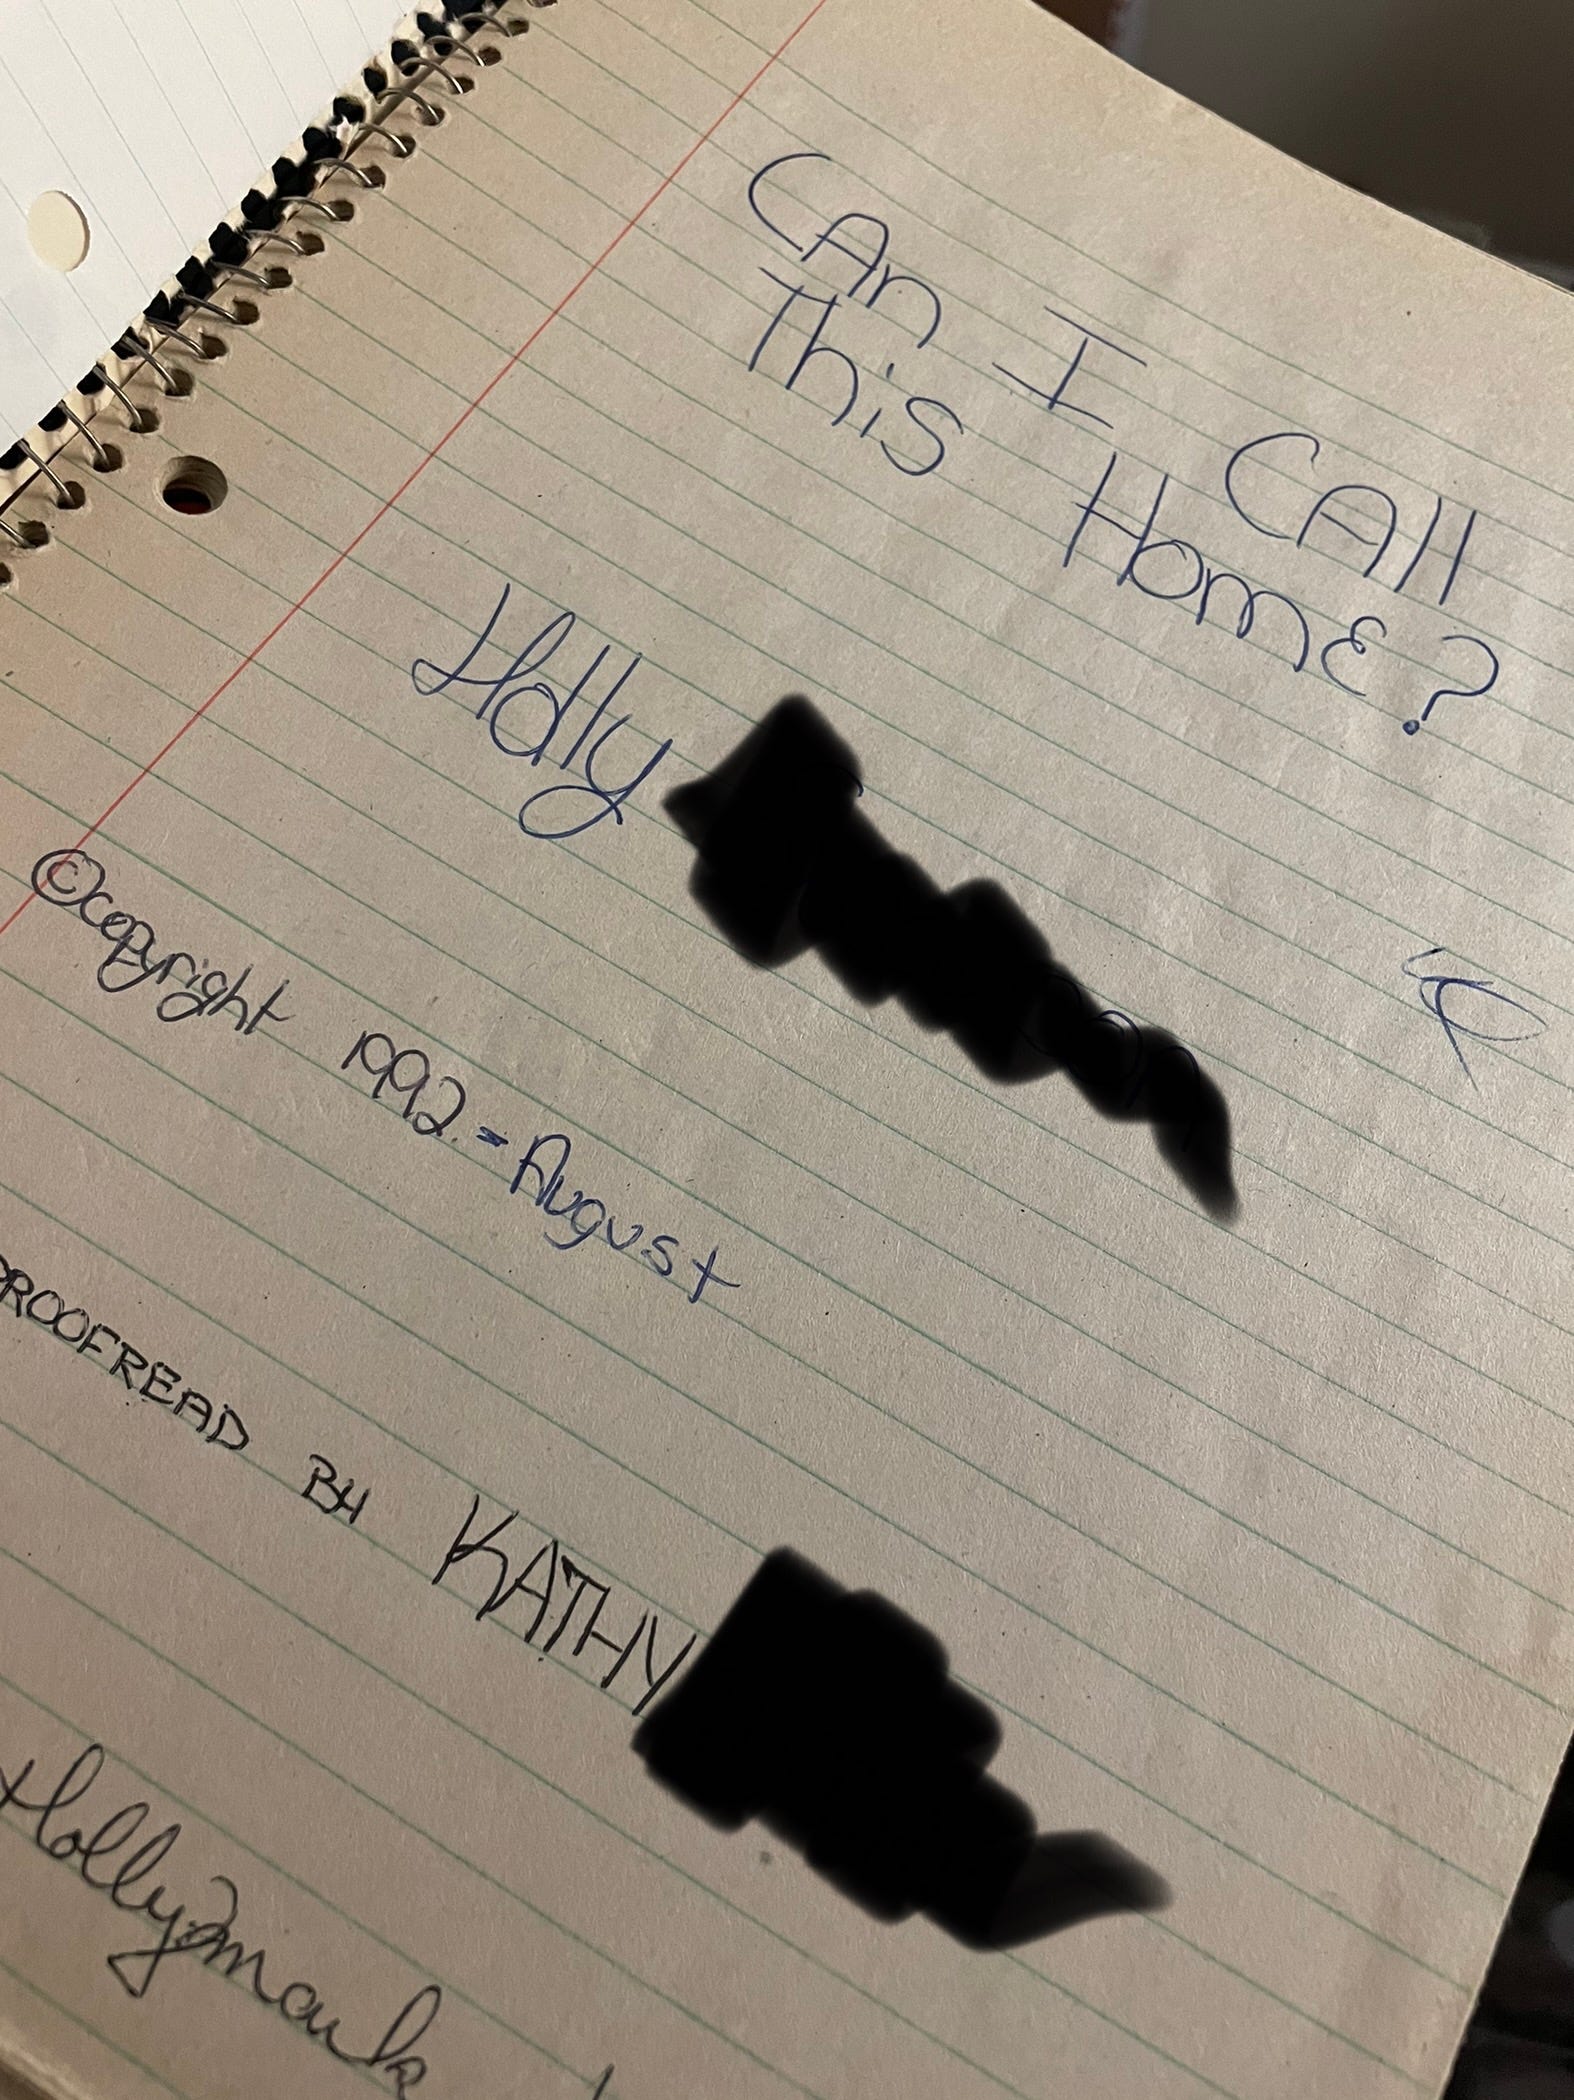 CAn I CAll
This Home?
Holly
©copyright 1992 - August
PROOFREAD BY KATHY
Hollymark